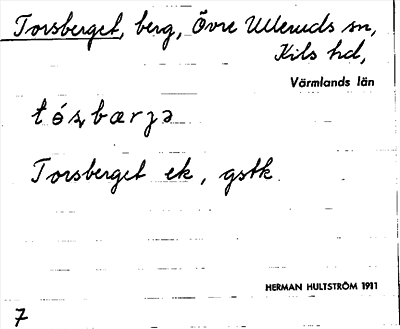 Torsberget, berg, Övre Ulleruds sn,
Kils hd,
Värmlands län
tós̨bærʒə
Torsberget ek, gstk
HERMAN HULTSTRÖM 1911
7